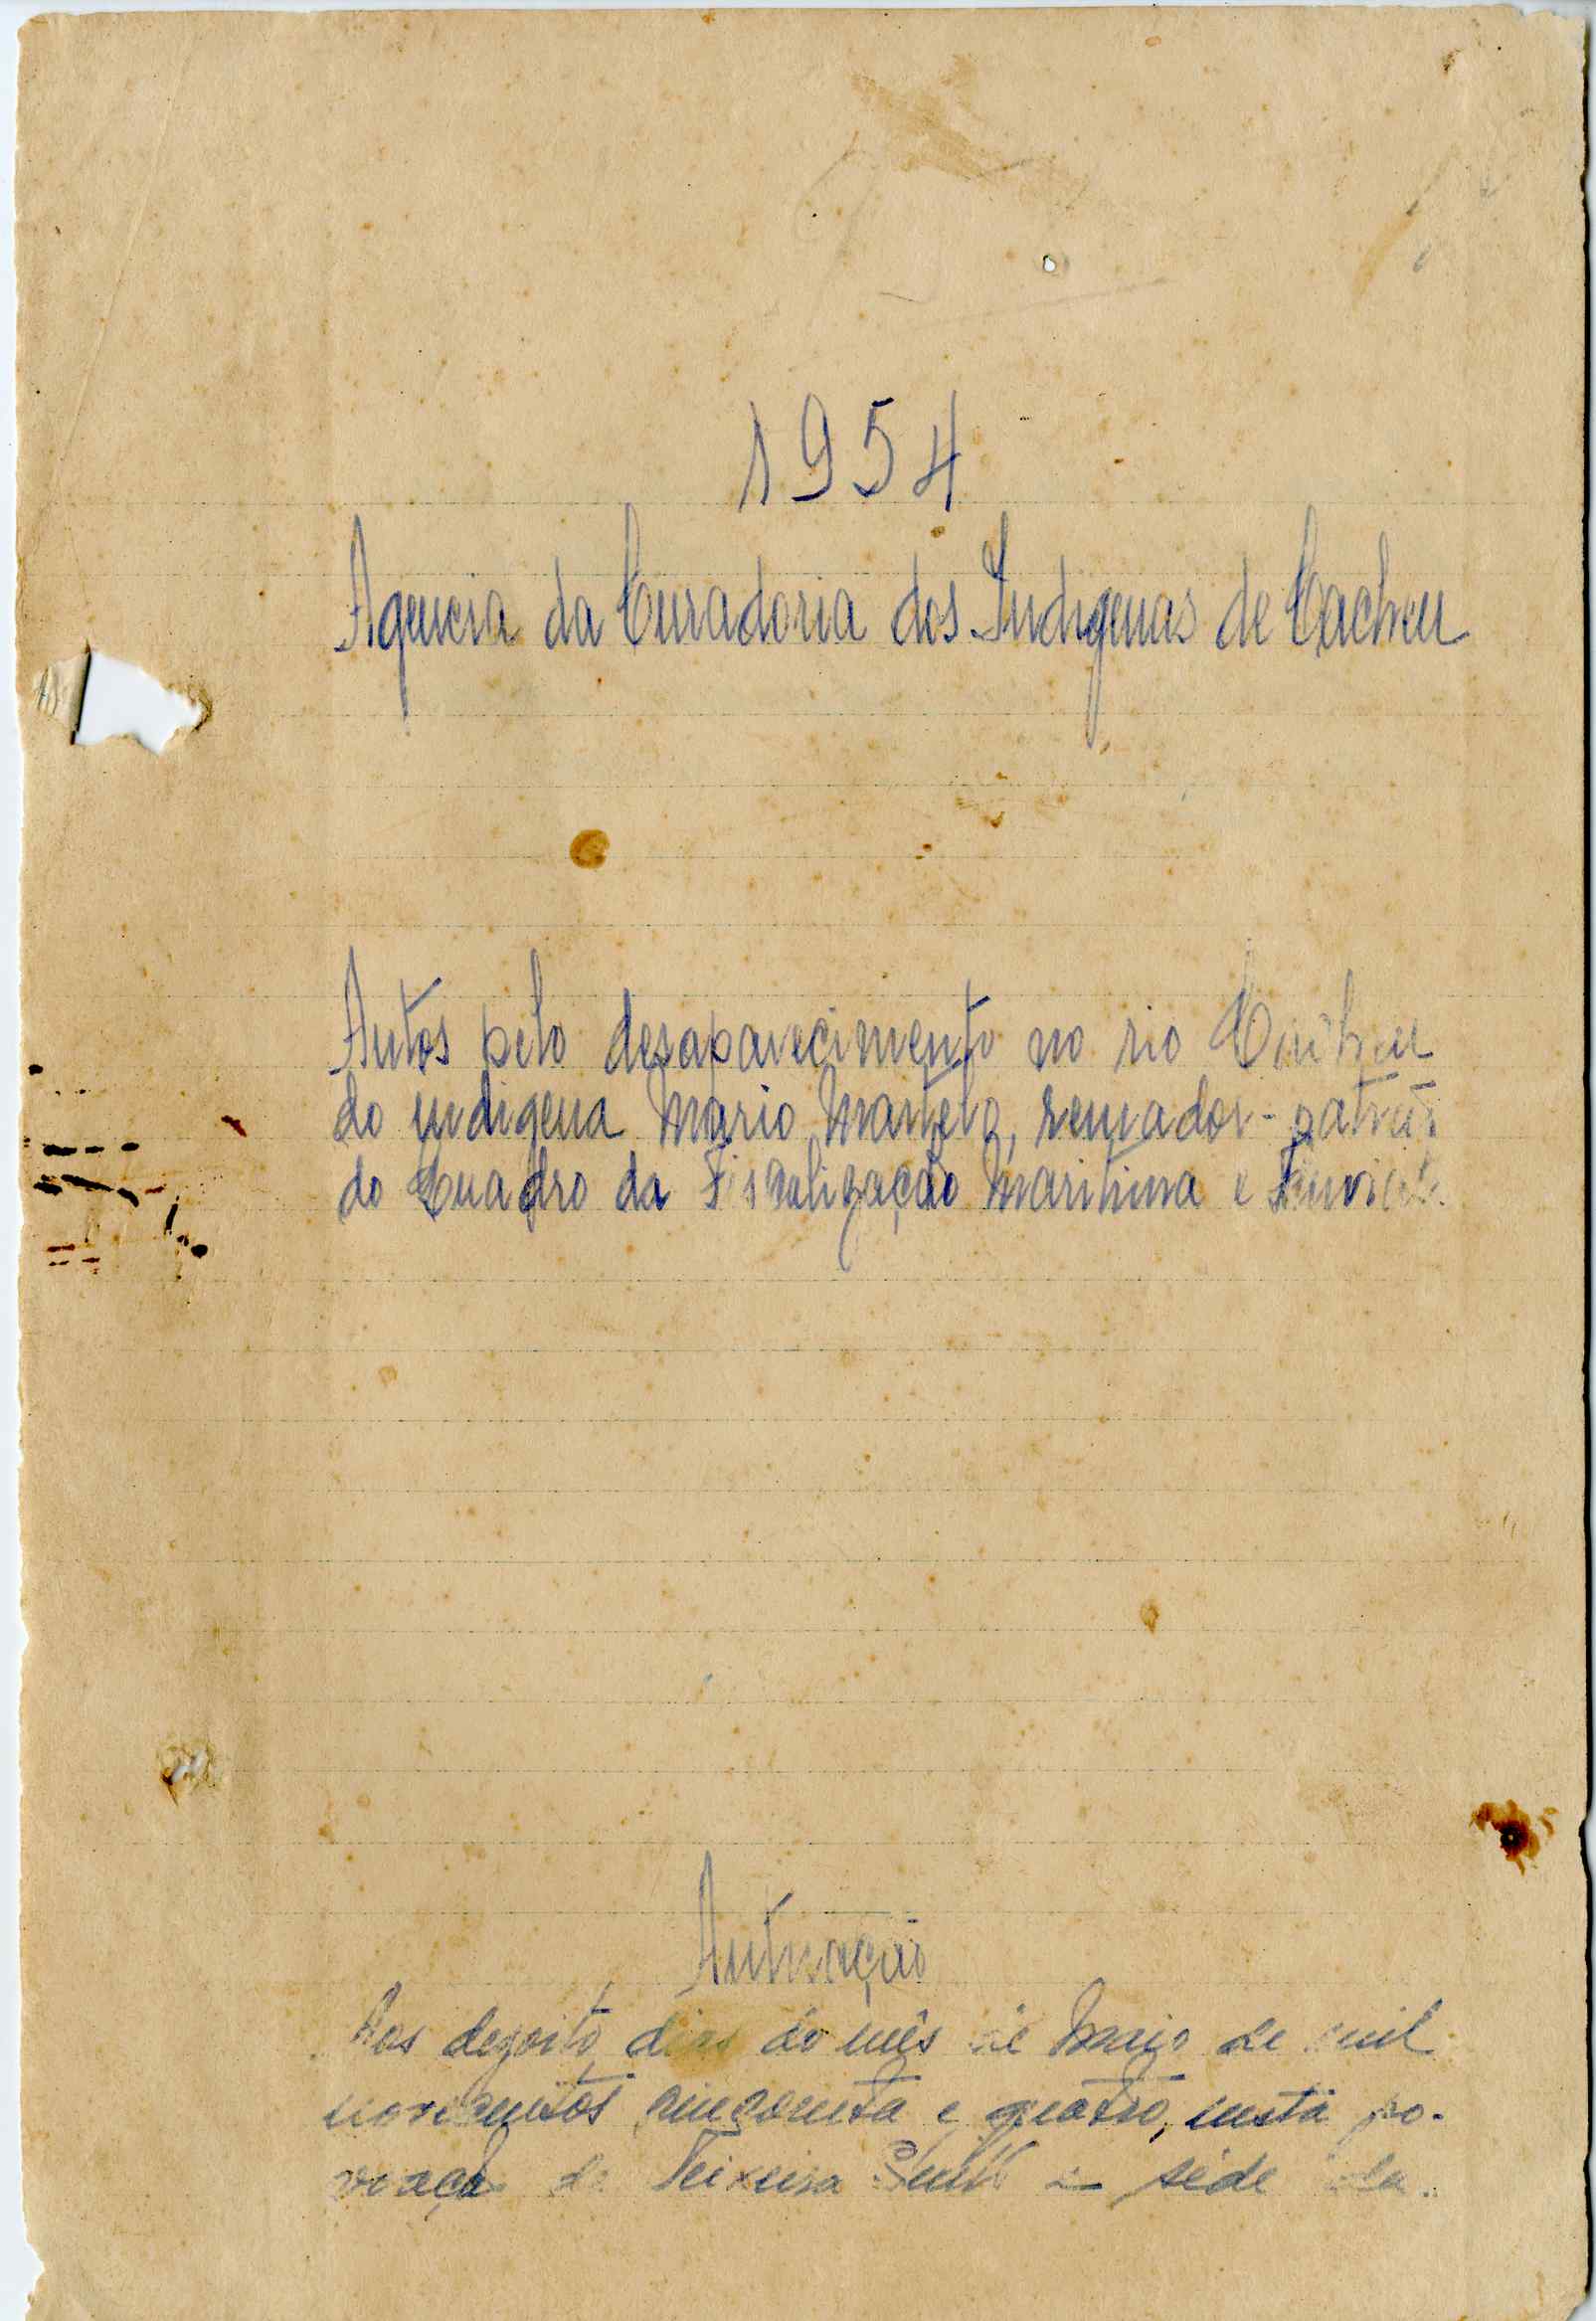 1954
Agencia da Curadoria dos Indigenas de Cacheu
Autos pelo desaparecimento no rio Cacheu
do indigena Mario Martelo, remador-patrão
do Quadro da Fiscalização Maritima e Fluvial.
Autuação
Aos dezoito dias do mês de Maio de mil
novecentos cincoenta e quatro, nesta po-
voação de Teixeira Pinto e séde da